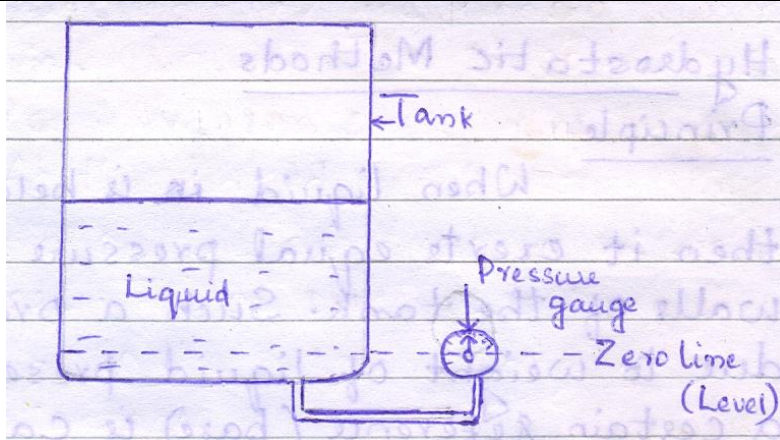 Tank
Liquid
Pressure
gauge
Zero line
(Level)